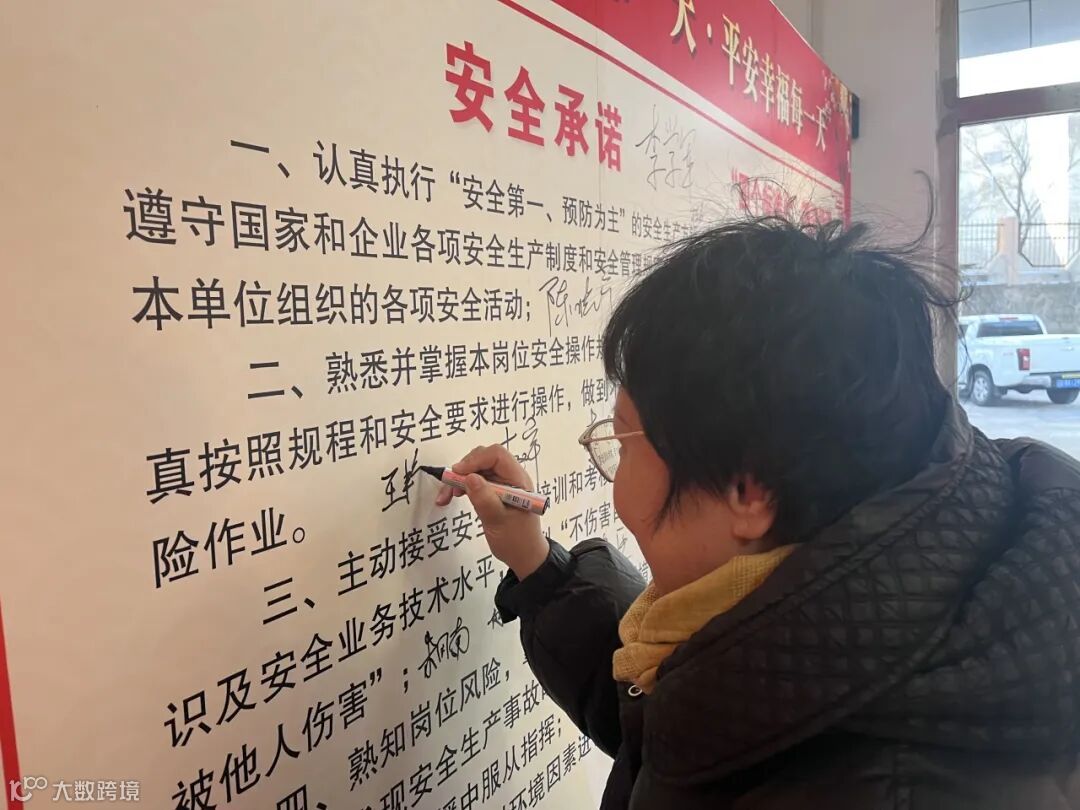 天·平安幸福每一天
安全承诺
一、认真执行“安全第一、预防为主”的安全生产
遵守国家和企业各项安全生产制度和安全管理
本单位组织的各项安全活动；
二、熟悉并掌握本岗位安全操作
真按照规程和安全要求进行操作，做到
险作业。
三、主动接受安全培训和考
识及安全业务技术水平，
“不伤害
被他人伤害”；
四、熟知岗位风险，
发现安全生产事故
中服从指挥；
环境因素进
大数跨境